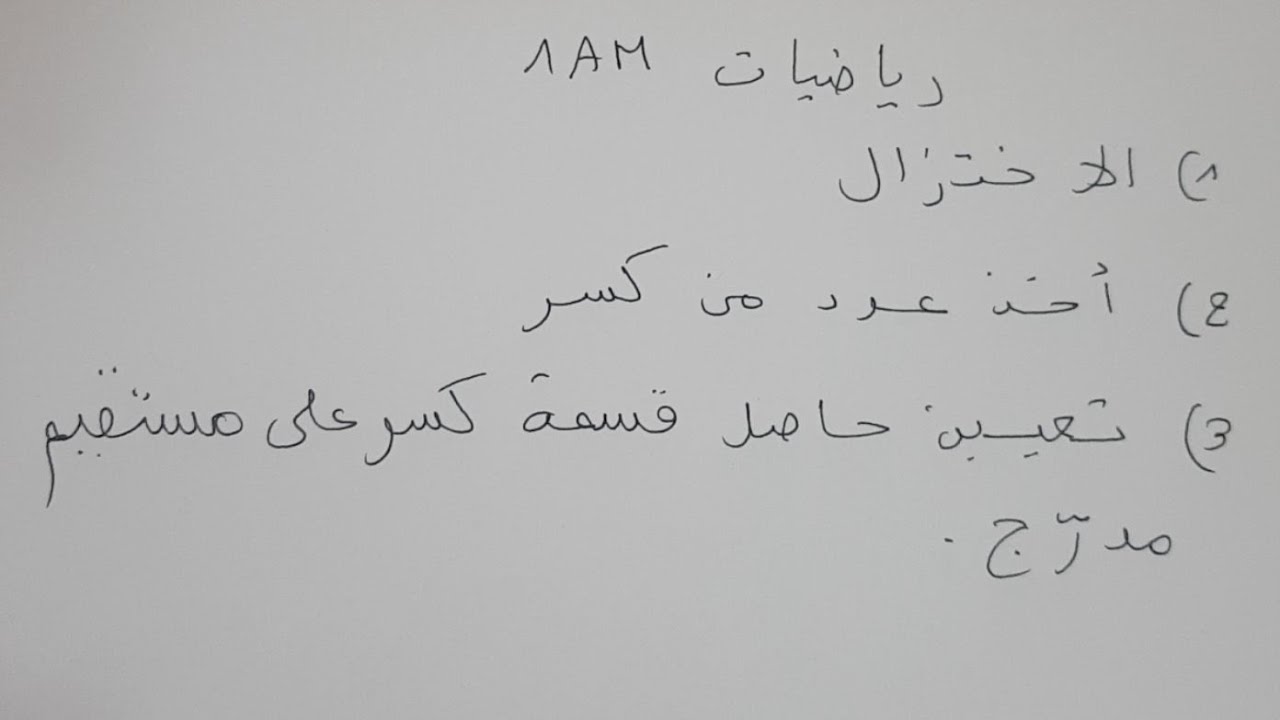 رياضيات 1AM
1) الاختزال
2) أخذ عدد من كسر
3) تعيين حاصل قسمة كسر على مستقيم
مدرّج .